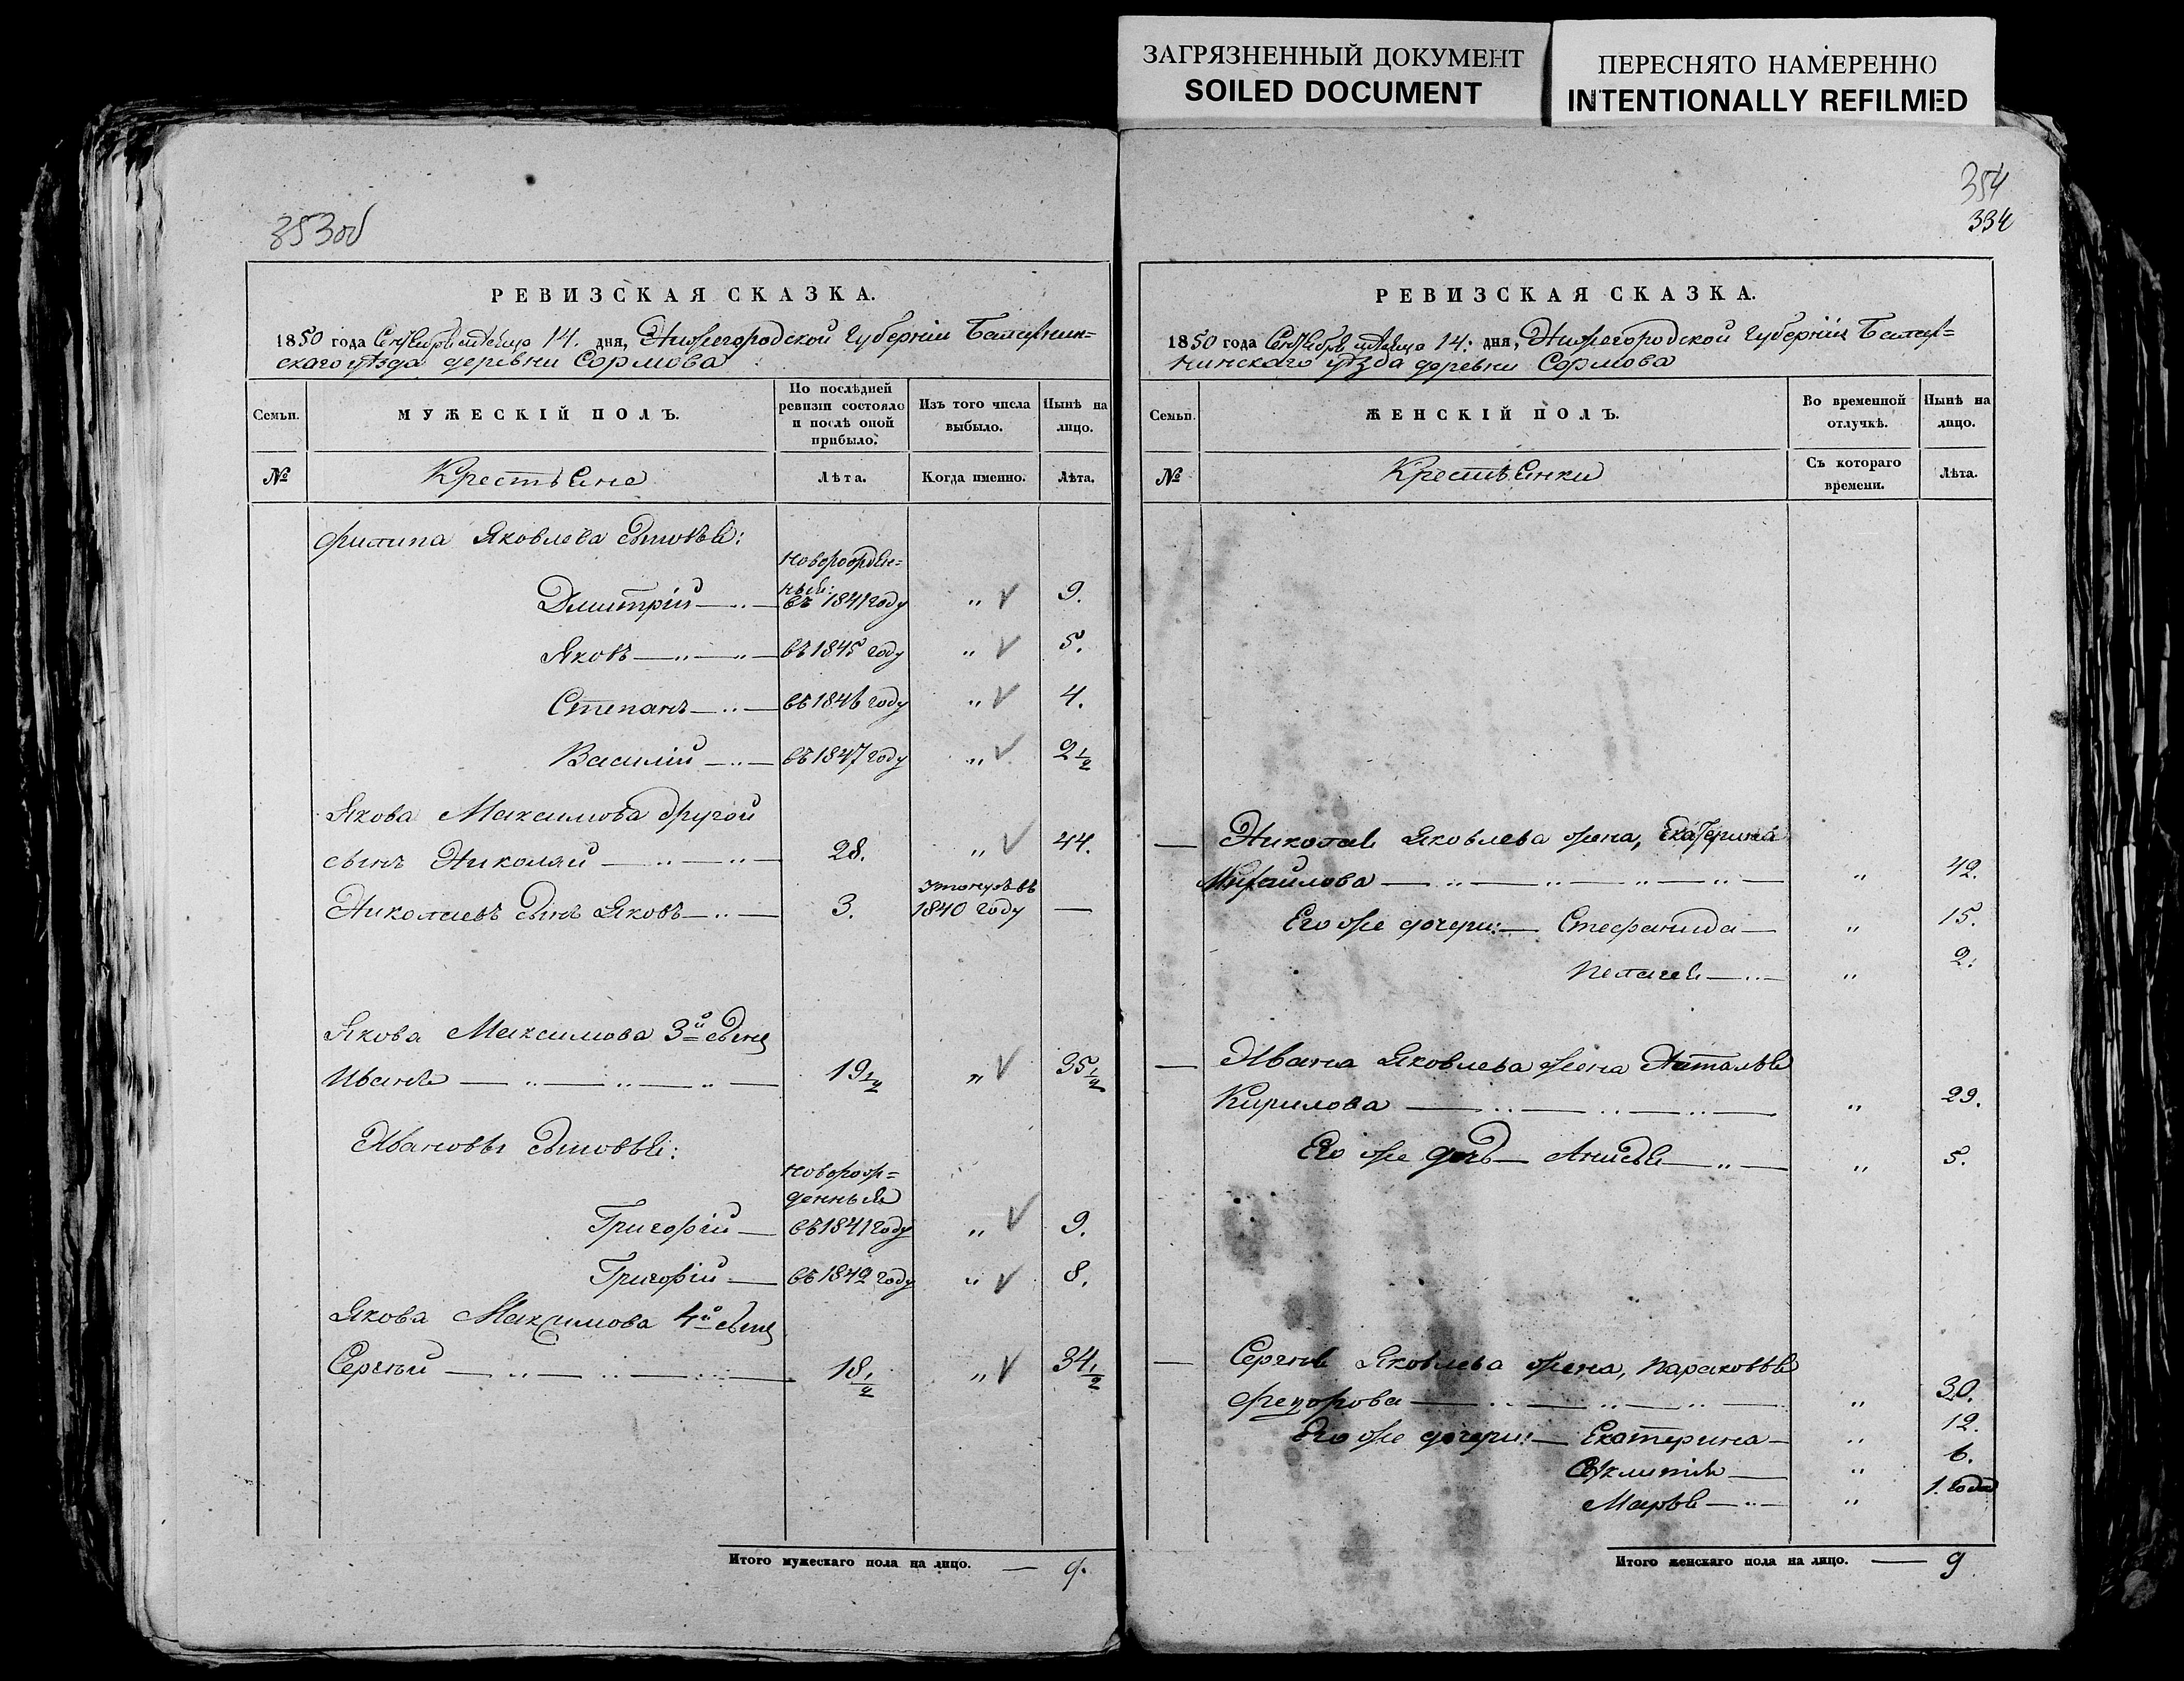 ЗАГРЯЗНЕННЫЙ ДОКУМЕНТ
SOILED DOCUMENT
ПЕРЕСНЯТО НАМЕРЕННО
INTENTIONALLY REFILMED
353об
РЕВИЗСКАЯ СКАЗКА.
1850 года Сентября месяца 14. дня, Нижегородской Губернии Балахнин=
скаго уѣзда деревни Сормова
Семьи.
МУЖЕСКІЙ ПОЛЪ.
По послѣдней
ревизіи состояло
и послѣ оной
прибыло.
Изъ того числа
выбыло.
Нынѣ на
лицо.
№
Крестьяне
Лѣта.
Когда именно.
Лѣта.
Филипа Яковлева сыновья:
новорожден=
ный:
Дмитрій — въ 1841 году " 9.
Яковъ — " — въ 1845 году " 5.
Степанъ — въ 1846 году " 4.
Василій — въ 1847 году " 2 1/2
Якова Максимова другой
сынъ Николай — " — 28. " 44.
утонулъ въ
Николаевъ сынъ Яковъ — 3. 1840 году —
Якова Максимова 3й сынъ
Иванъ — " — " — " — 19 1/2 " 35 1/2
Ивановы сыновья:
новорож=
денныя
Григорій — въ 1841 году " 9.
Григорій — въ 1842 году " 8.
Якова Максимова 4й сынъ
Сергѣй — " — " — 18 1/2 " 34 1/2
Итого мужескаго пола на лицо. — 9.
354
334
РЕВИЗСКАЯ СКАЗКА.
1850 года Сентября месяца 14. дня, Нижегородской Губерніи Балах=
нинскаго уѣзда деревни Сормова
Семьи.
ЖЕНСКІЙ ПОЛЪ.
Во временной
отлучкѣ.
Нынѣ на
лицо.
№
Крестьянки
Съ котораго
времени.
Лѣта.
— Николая Яковлева жена, Екатерина
Михайлова — " — " — " — " — " 42.
Его же дочери: — Стефанида — " 15.
Пелагея — " — " 2.
— Ивана Яковлева жена Наталья
Кирилова — " — " — " — " 29.
Его же дочь — Анисья — " — " 5.
— Сергѣя Яковлева жена, Парасковья
Федорова — " — " — " — " 30.
Его же дочери: — Екатерина — " 12.
" 6.
Марья — " — " 1. года
Итого женскаго пола на лицо. — 9